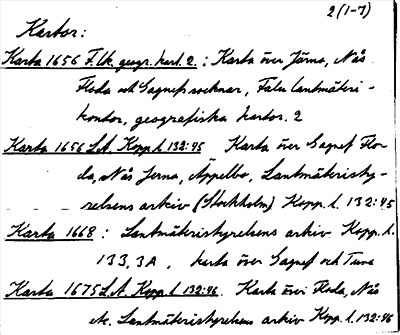 2(1-7)
Kartor:
Karta 1656 F.lk. geogr. kart. 2 : Karta över Järna, Nås
Floda och Gagnefs socknar, Falu lantmäteri-
kontor, geografiska kartor. 2
Karta 1656 L.A. Kopp. l. 132:45 Karta över Gagnef Flo-
da, Nås Jerna, Äppelbo, Lantmäteristy-
relsens arkiv (Stockholm) Kopp. l. 132:45
Karta 1668 : Lantmäteristyrelsens arkiv Kopp. l.
133, 3A, karta över Gagnef och Tuna
Karta 1675 L.A. Kopp. l 132:46. Karta över Floda, Nås
etc. Lantmäteristyrelsens arkiv Kopp. l. 132:46